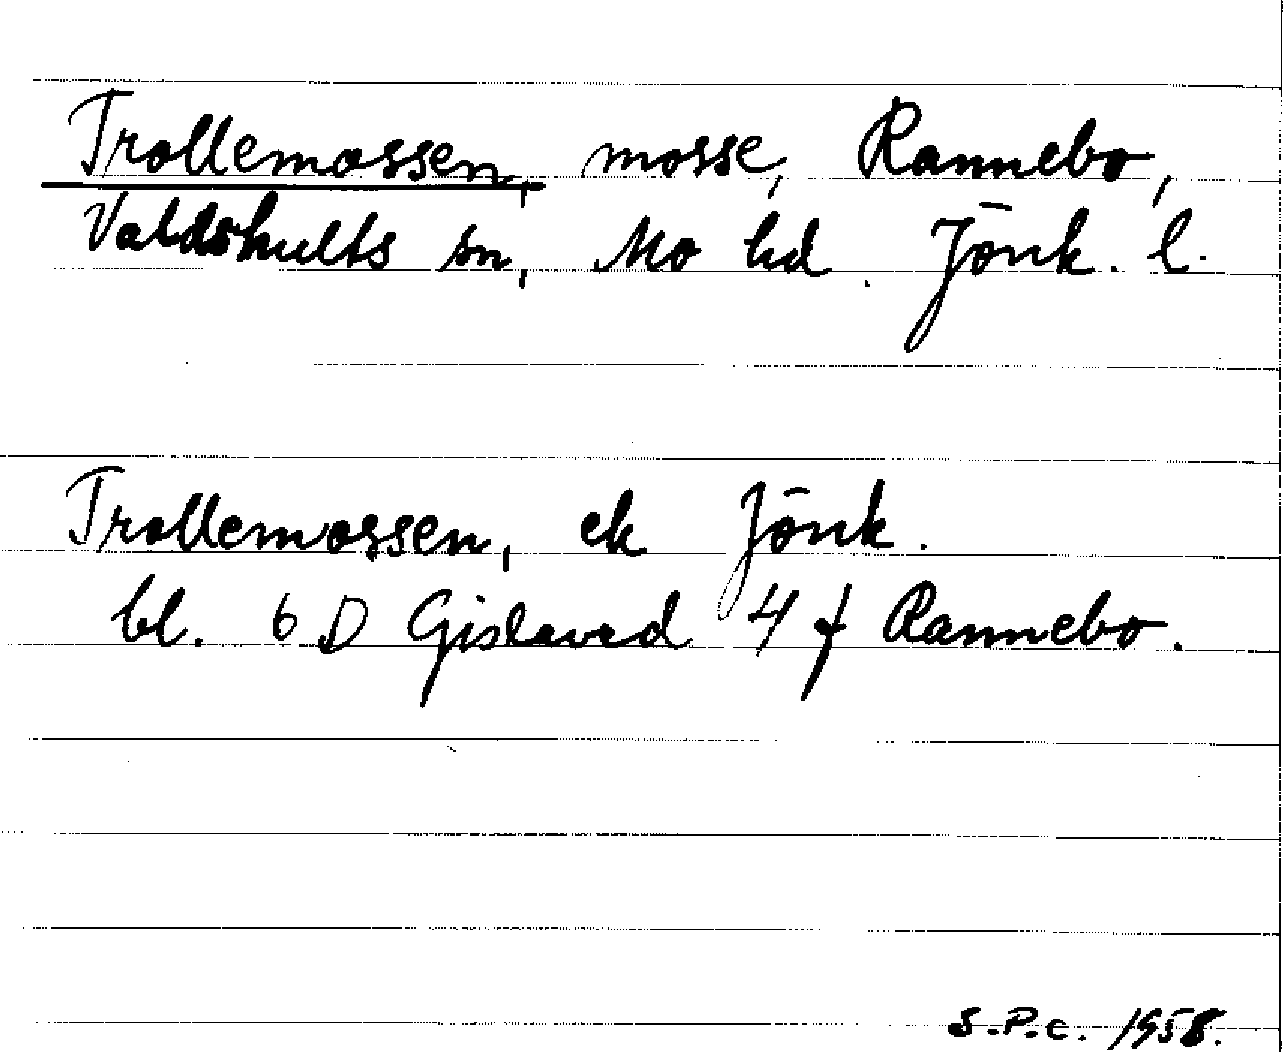 Trollemossen, mosse, Rannebo,
Valdshults sn, Mo hd. Jönk. l.
Trollemossen, ek Jönk.
bl. 6 D Gislaved 4 f Rannebo.
S.P.e. 1958.